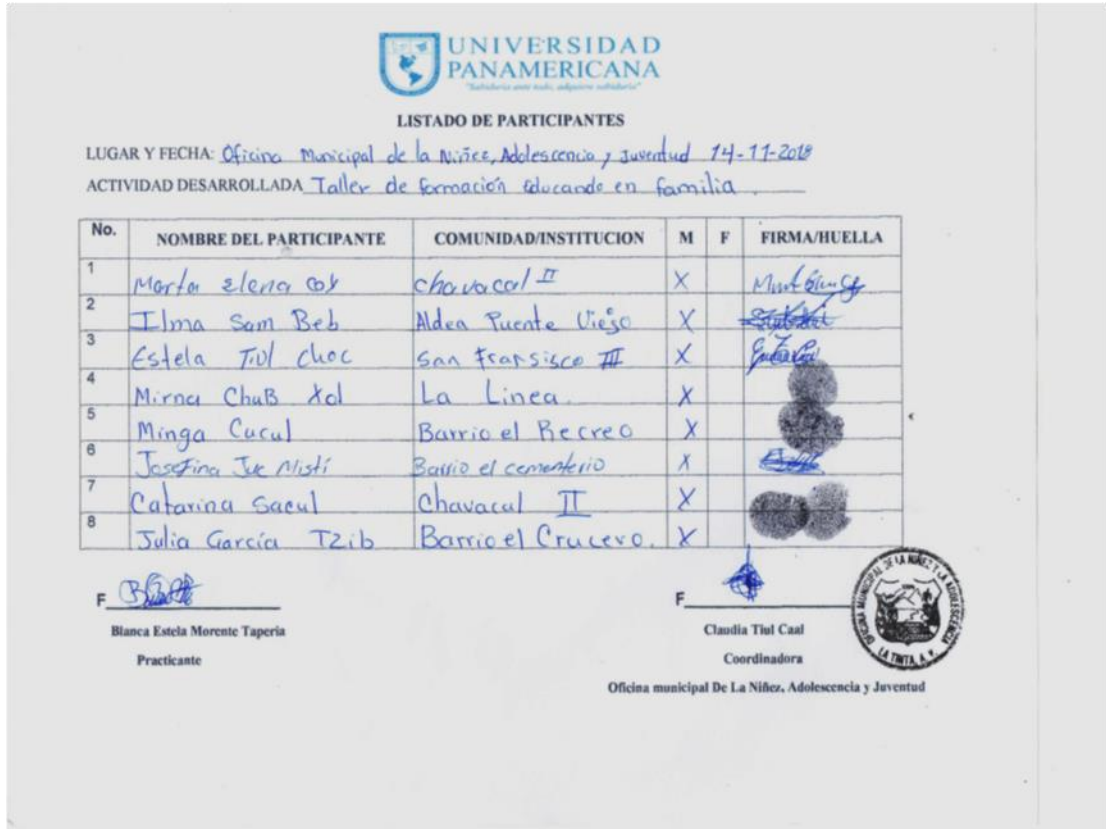 UNIVERSIDAD
PANAMERICANA
"Sabiduría ante todo, adquiere sabiduría"
LISTADO DE PARTICIPANTES
LUGAR Y FECHA: Oficina Municipal de la Niñez, Adolescencia y Juventud 14-11-2018
ACTIVIDAD DESARROLLADA Taller de formación educando en familia.
No. NOMBRE DEL PARTICIPANTE COMUNIDAD/INSTITUCION M F FIRMA/HUELLA
1 Marta Elena Coy Chavacal II X
2 Ilma Sam Beb Aldea Puente Viejo X
3 Estela Tiul Choc San Fransisco III X
4 Mirna ChuB Xol La Linea. X
5 Minga Cucul Barrio el Recreo X
6 Josefina Juc Mistí Barrio el cementerio X
7 Catarina Sacul Chavacal II X
8 Julia García Tzib Barrio el Crucero. X
F
Blanca Estela Morente Taperia
Practicante
F
Claudia Tiul Caal
Coordinadora
Oficina municipal De La Niñez, Adolescencia y Juventud
OFICINA MUNICIPAL DE LA NIÑEZ Y LA ADOLESCENCIA
LA TINTA, A.V.